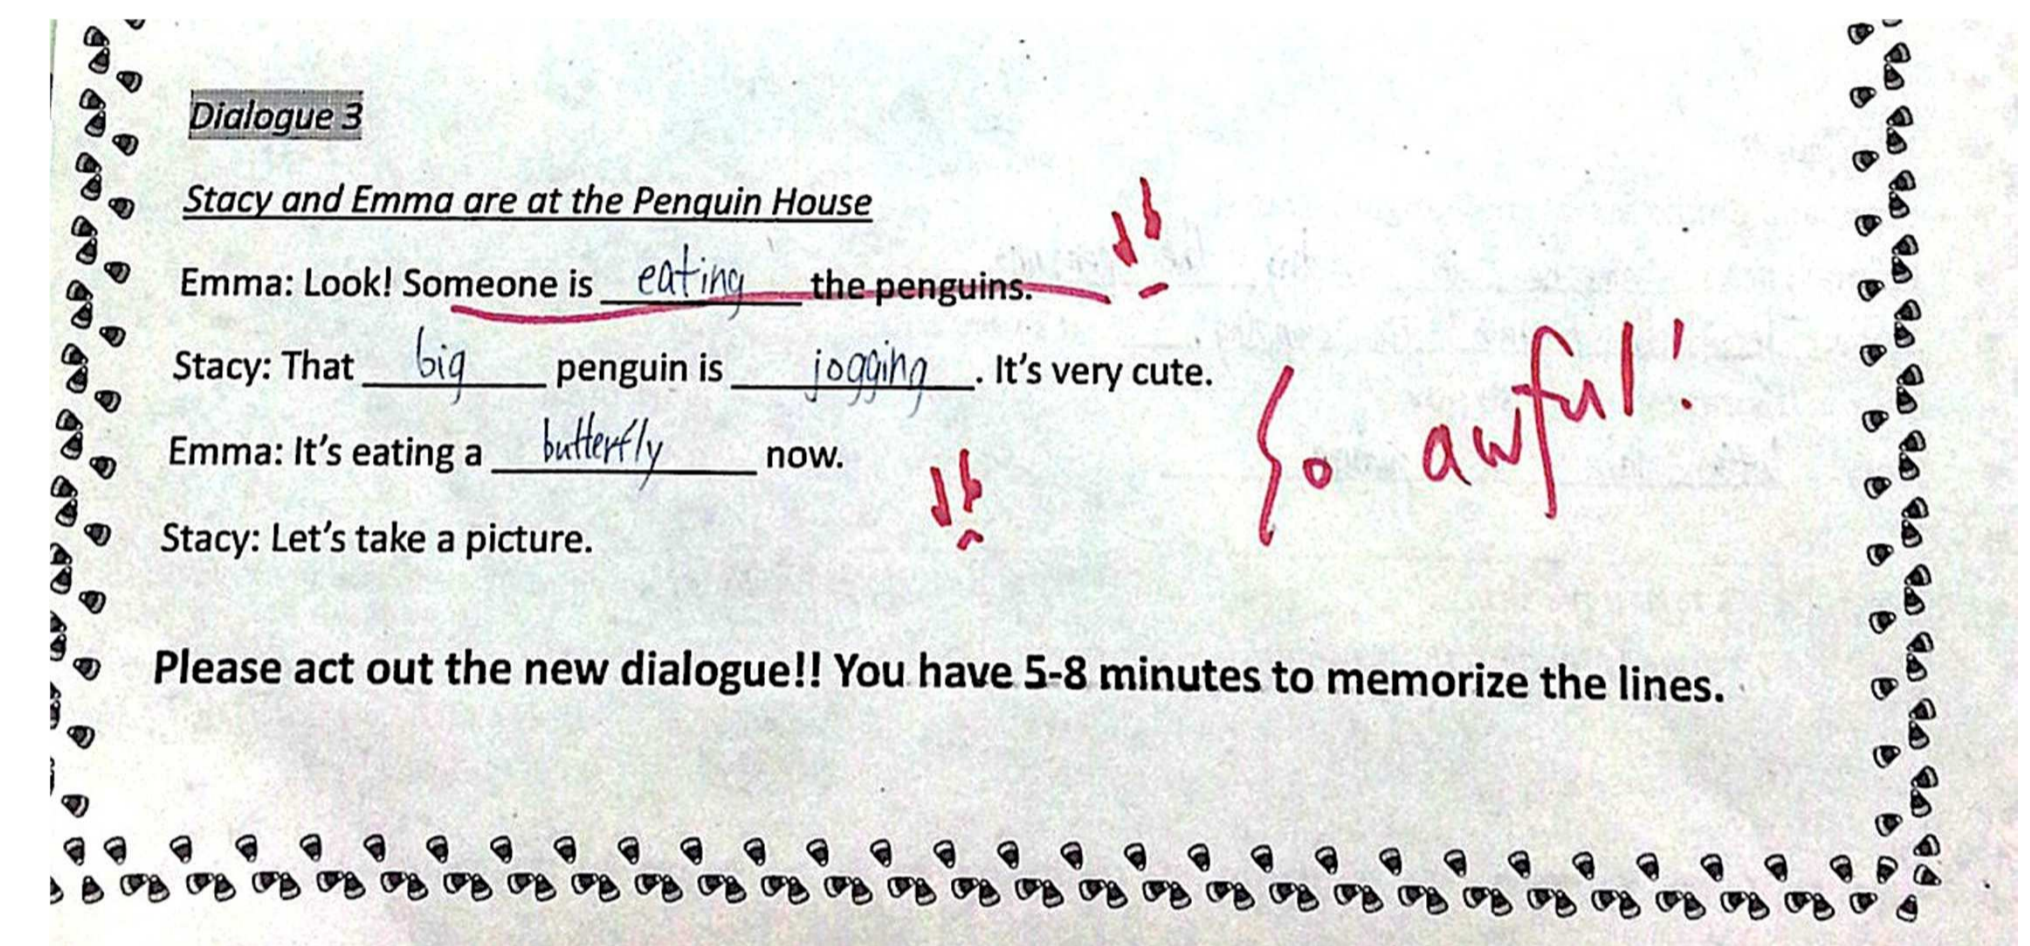 Dialogue 3
Stacy and Emma are at the Penguin House
Emma: Look! Someone is eating the penguins. !!
Stacy: That big penguin is jogging. It's very cute.
So awful!
Emma: It's eating a butterfly now.
Stacy: Let's take a picture. !!
Please act out the new dialogue!! You have 5-8 minutes to memorize the lines.